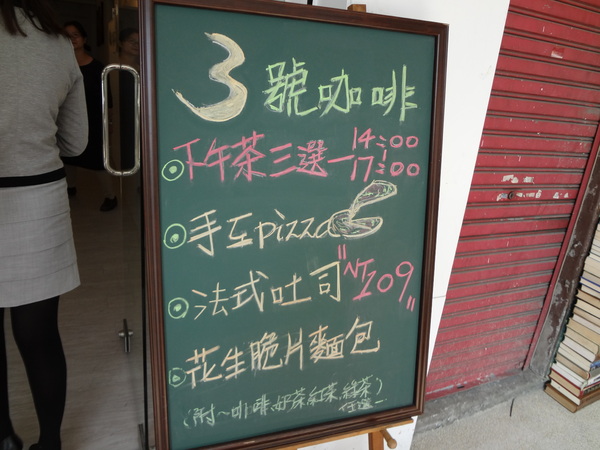 3號咖啡
下午茶三選一 14:00 | 17:00
手工pizza
法式吐司 "NT109"
花生脆片麵包
(附~咖啡、奶茶、紅茶、綠茶) 任選一